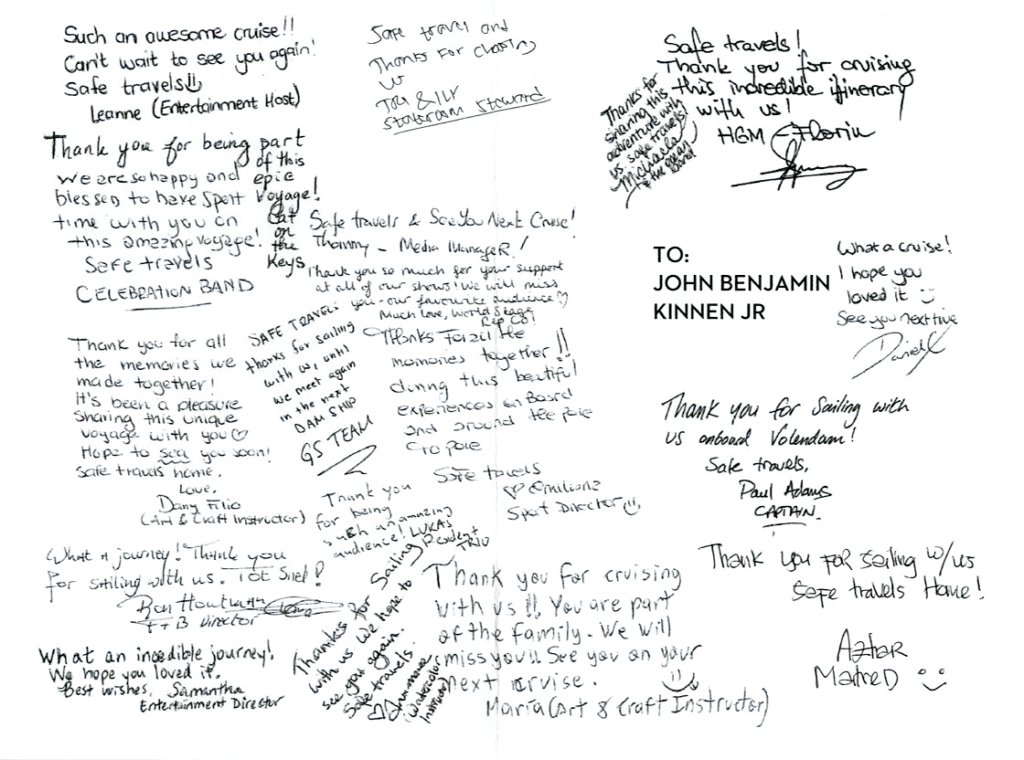 Such an awesome cruise!!
Can't wait to see you again!
Safe travels
Leanne (Entertainment Host)
Thank you for being part
of this
epic
voyage!
Cat
on
the
Keys
we are so happy and
blessed to have spent
time with you on
this amazing voyage!
Safe travels
CELEBRATION BAND
Thank you for all
the memories we
made together!
It's been a pleasure
sharing this unique
voyage with you ♡
Hope to see you soon!
Safe travels home.
Love,
Dany
(Art & Craft Instructor)
What a journey! Thank you
for sailing with us. Tot Snel!
F+B Director
What an incredible journey!
We hope you loved it.
Best wishes, Samantha
Entertainment Director
Safe travel and
Thanks For
us
stateroom steward
Safe travels & See You Next Cruise!
Thammy - Media Manager!
Thank you so much for your support
at all of our shows! We will miss
you - our favourite audience ♡
Much love, World Stage
Rep Co!
SAFE TRAVELS
thanks for sailing
with us, until
we meet again
in the next
DAM SHIP
GS TEAM
Thanks For all the
memories together!!
during this beautiful
experiences on Board
and around the
Safe travels
♡ Emiliana
Director
Thank you
for being
such an amazing
audience! LUKAS
TRIO
Thanks for Sailing
with us we hope to
see you again.
Safe travels
(Watercolor
Instructor)
Thank you for cruising
with us!! You are part
of the family. We will
miss you!! See you on your
next cruise.
María (Art & Craft Instructor)
Safe travels!
Thank you for cruising
this incredible itinerary
with us!
HGM - Florin
Thanks for
sharing this
adventure with
us safe travels!
Michaela
& the
TO:
JOHN BENJAMIN
KINNEN JR
What a cruise!
I hope you
loved it
See you next time
Thank you for Sailing with
us onboard Volendam!
Safe travels,
Paul Adams
CAPTAIN.
Thank you FOR sailing w/us
Safe travels Home!
Azhar